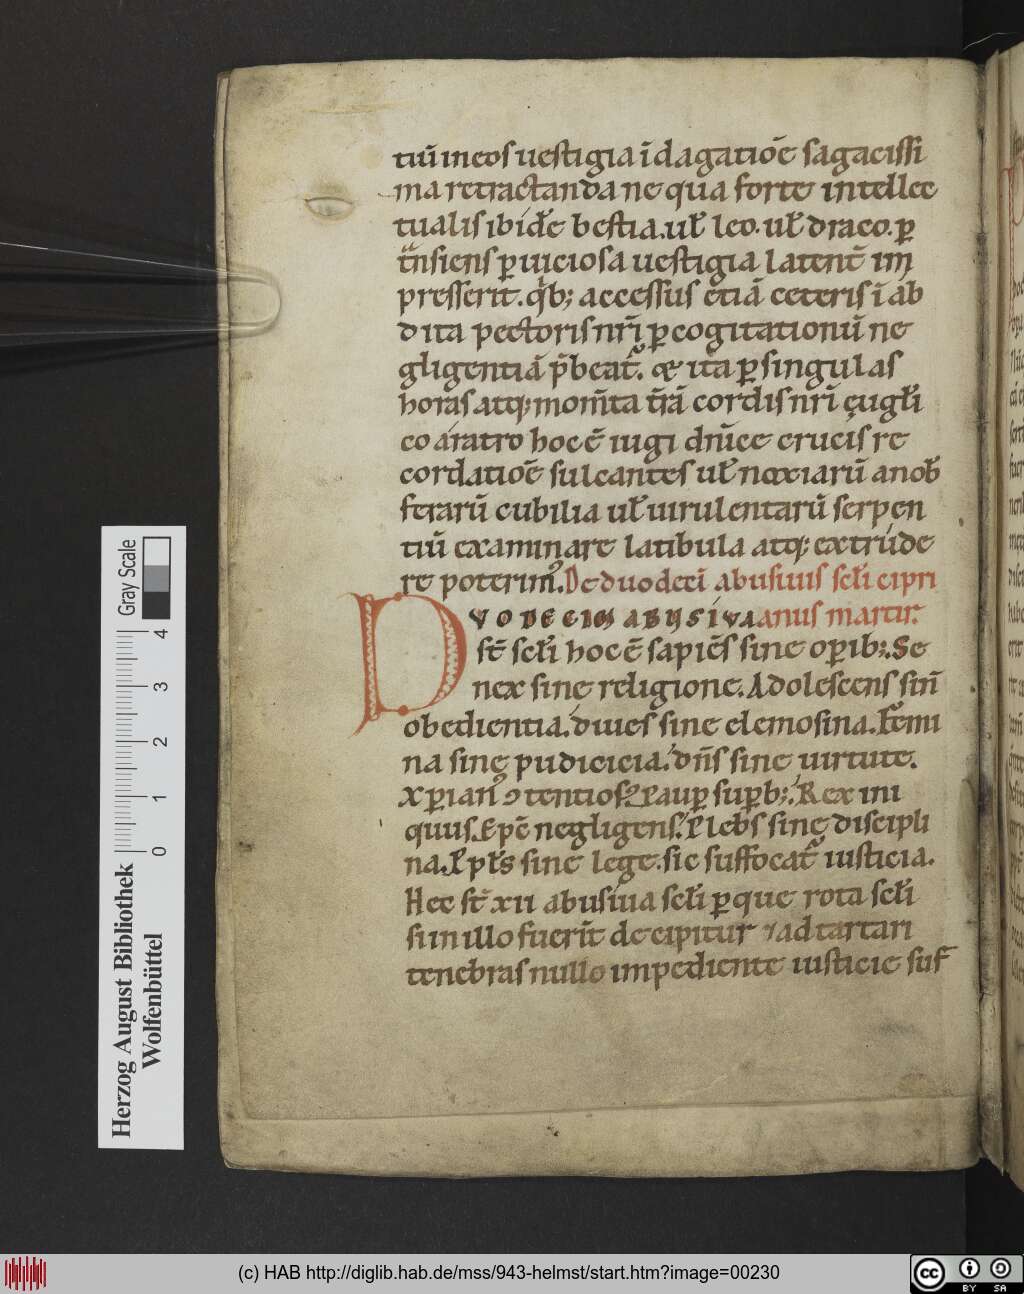 tiū in eos uestigia īdagatiōe sagacissi
ma retractanda ne qua forte intellec
tualis ibidē bestia. ul̄ leo. ul̄ draco. ꝑ
t̄nsiens ꝑuiciosa uestigia latent̄ im
presserit. qͥb; accessus etiā ceteris ī ab
dita pectoris nr̄i ꝑ cogitationū ne
gligentiā p̄beat̄. & ita ꝑ singulas
horas atq; mom̄ta t̄rā cordis nr̄i eugl̄i
co aratro hoc ē iugi dn̄ice crucis re
cordatiōe sulcantes ul̄ noxiarū anob̄
ferarū cubilia ul̄ uirulentarū serpen
tiū examinare latibula atq; extrude
re poterimꝰ. De duodecī abusiuis scl̄i cipri
VODECIM ABUSIVA anus martir.
st̄ scl̄i hoc ē sapiēs sine oꝑib;. Se
nex sine religione. Adolescens sin̄
obedientia. diues sine elemosina. Femi
na sine pudicicia. dn̄s sine uirtute.
Xꝑianꝰ ↄtentiosꝰ. Pauꝑ suꝑb;. Rex ini
quus. Epc̄ negligens. Plebs sine discipli
na. Ppl̄s sine lege. sic suffocat̄ iusticia.
Hec st̄ xii abusiua scl̄i ꝑ que rota scl̄i
si in illo fuerīt decipitur ⁊ ad tartari
tenebras nullo impediente iusticie suf
Herzog August Bibliothek
Wolfenbüttel
0 1 2 3 4
Gray Scale
(c) HAB http://diglib.hab.de/mss/943-helmst/start.htm?image=00230
cc BY SA